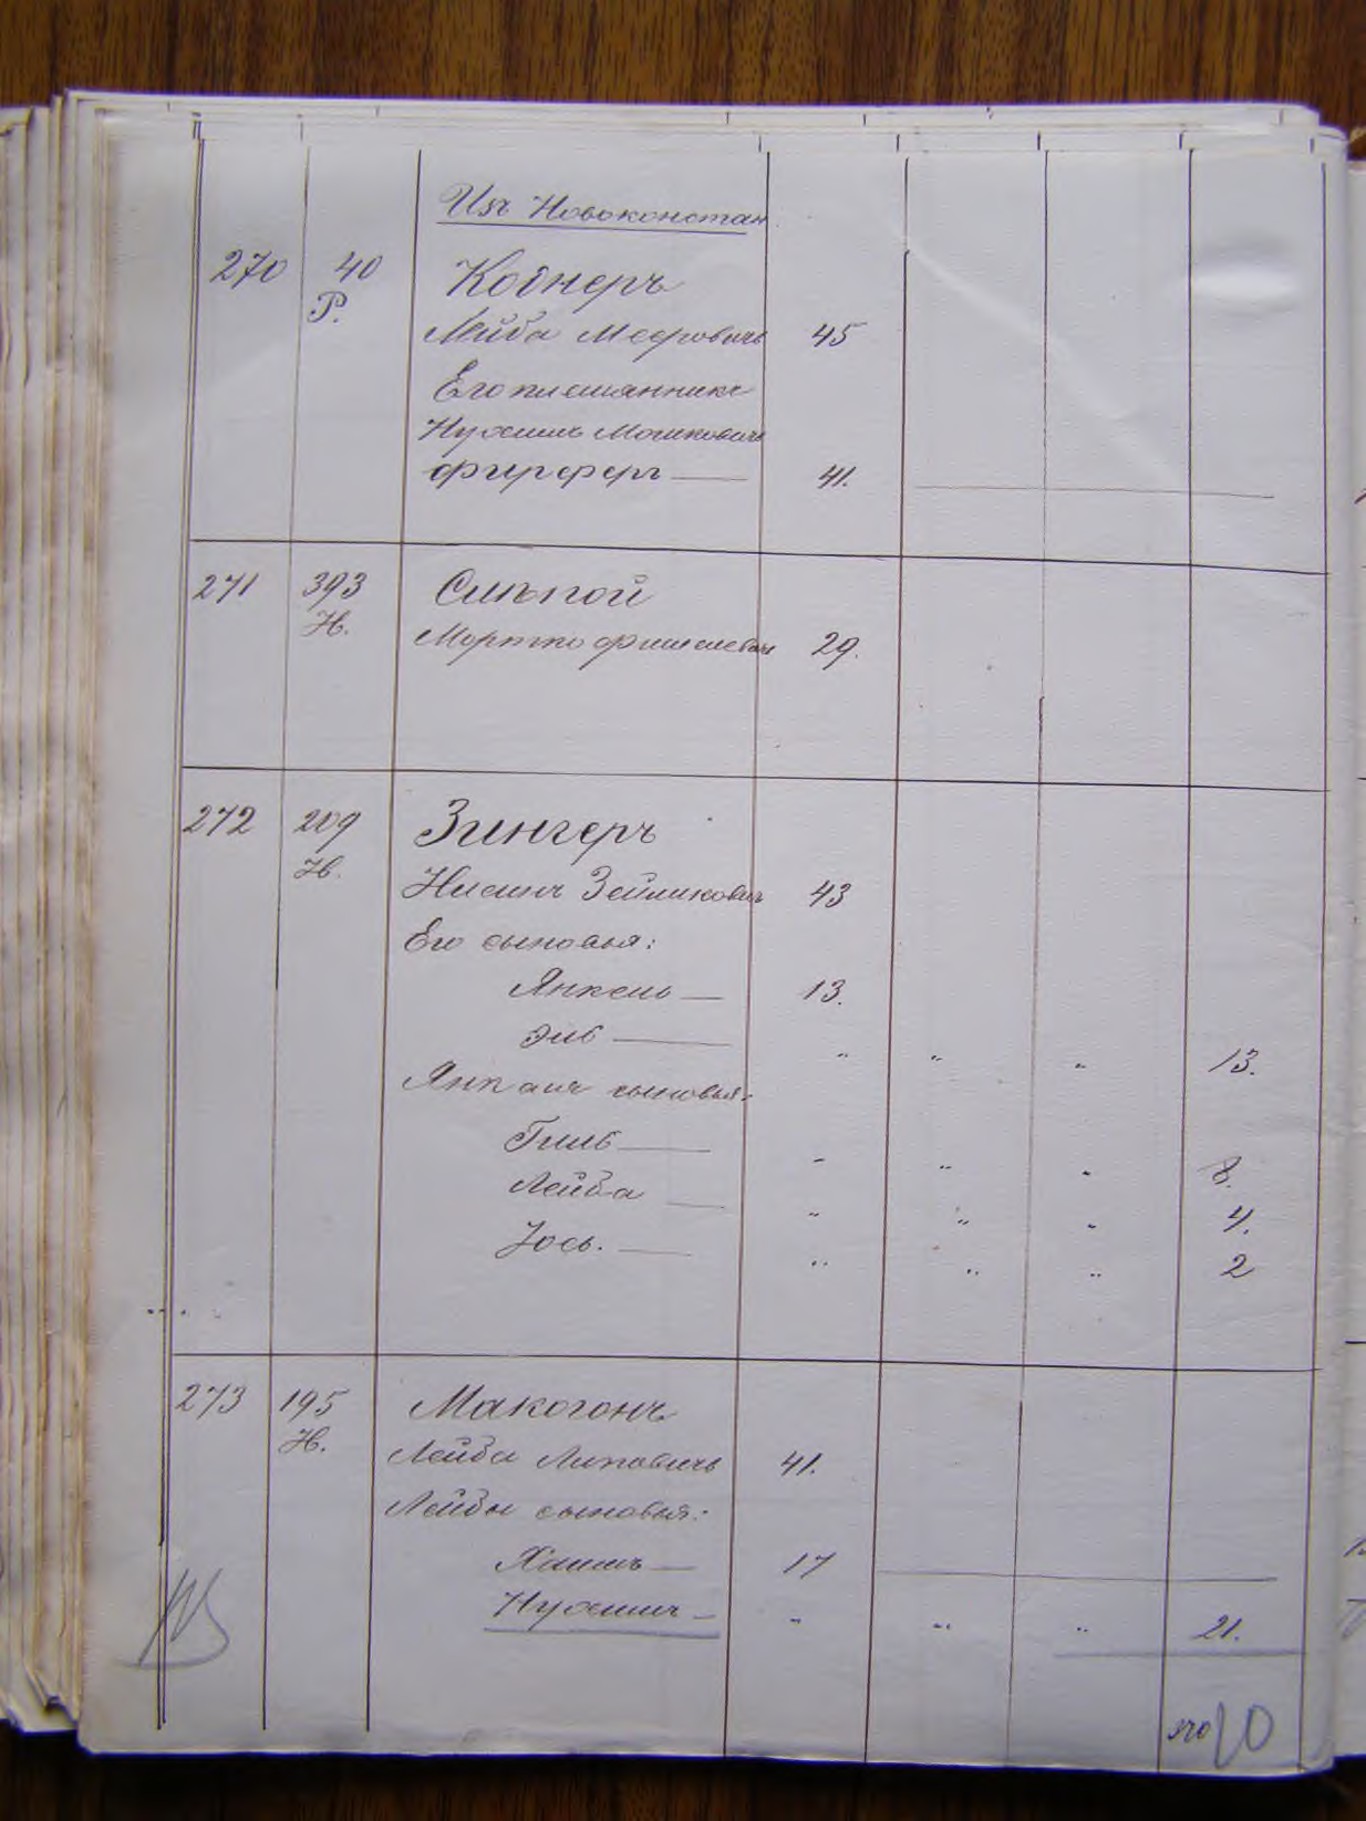 Изъ Новоконстан
270 40 Коднеръ
Р.
Лейба Меєровичъ 45
Его племянникъ
Нухимъ Мошковичъ
Фирферъ — 41.
271 393 Слѣпой
Н.
Мортко Фишелевичъ 29.
272 209 Зингеръ
Н.
Нисинъ Зейликовичъ 43
Его сыновья:
Янкель — 13.
Эль — " " " 13.
Янкеля сыновья:
Гиль — " " " 8.
Лейба — " " " 4.
Іось. — " " " 2
273 195 Макогонъ
Н.
Лейба Липовичъ 41.
Лейбы сыновья:
Хаимъ — 17
Нухимъ — " " " 21.